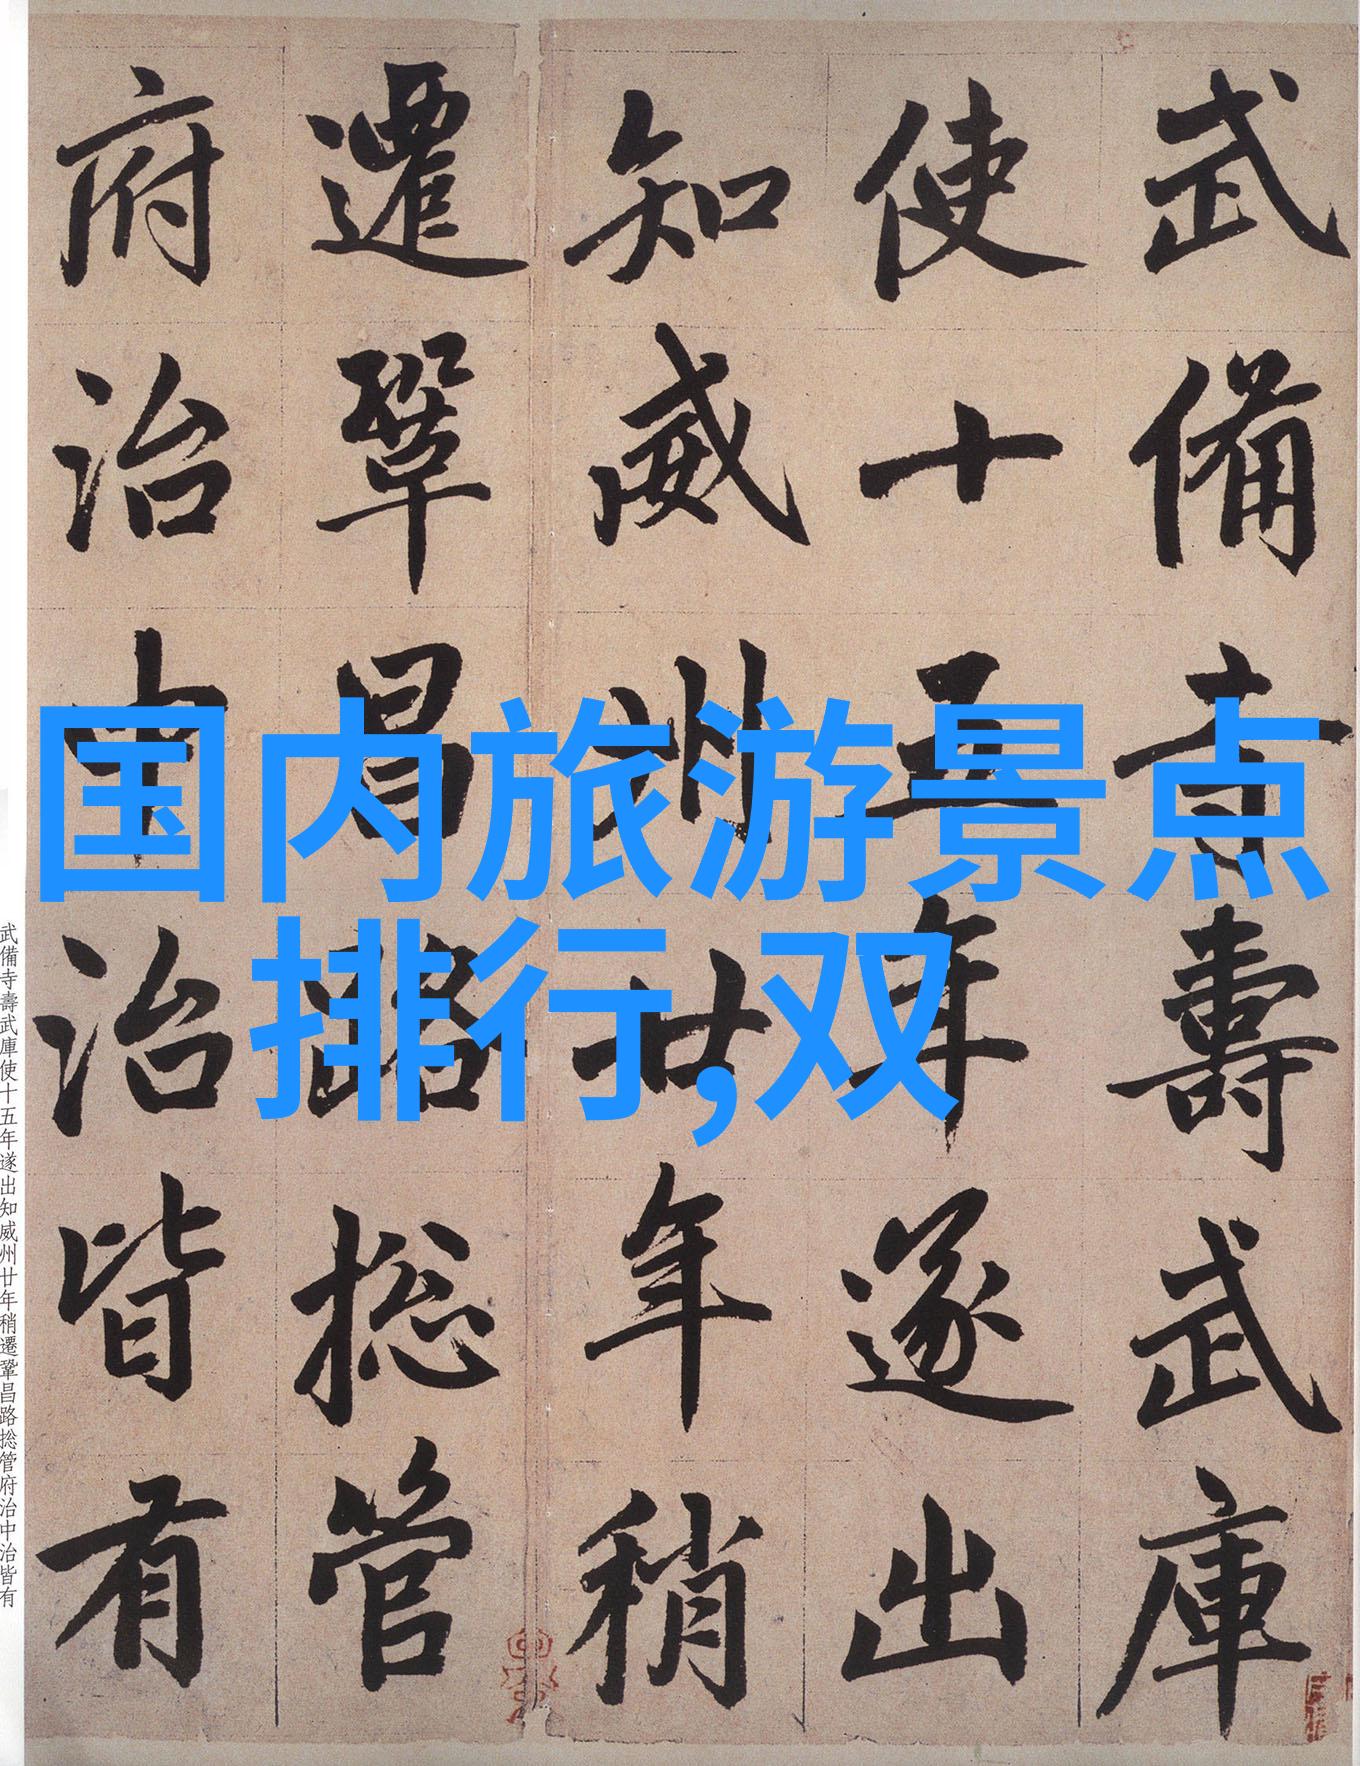 武備寺壽武庫
使十五年遂出
知威州廿年稍
遷鞏昌路捴管
府治中治皆有
国内旅游景点
排行,双
武備寺壽武庫使十五年遂出知威州廿年稍遷鞏昌路捴管府治中治皆有